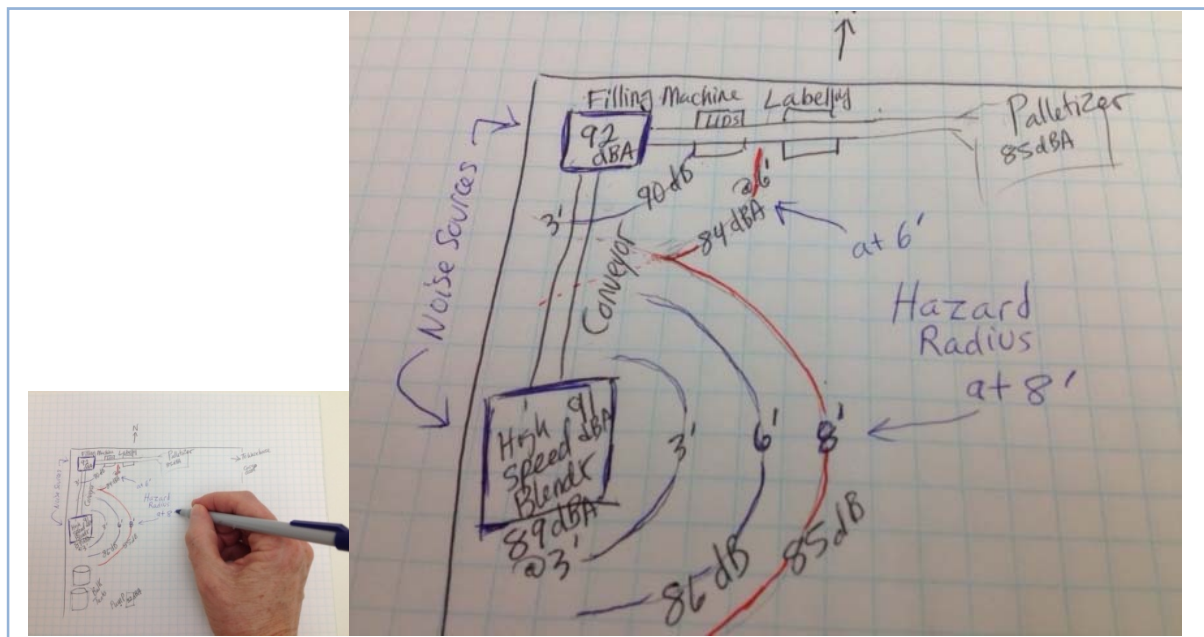 N
Filling Machine
Labelling
LIDS
92
dBA
Palletizer
85dBA
Noise Sources
3'
90 dB
@6'
84 dBA
at 6'
Conveyor
Hazard
Radius
at 8'
91
dBA
High
Speed
Blender
89dBA
@3'
3'
6'
8'
86 dB
85dB